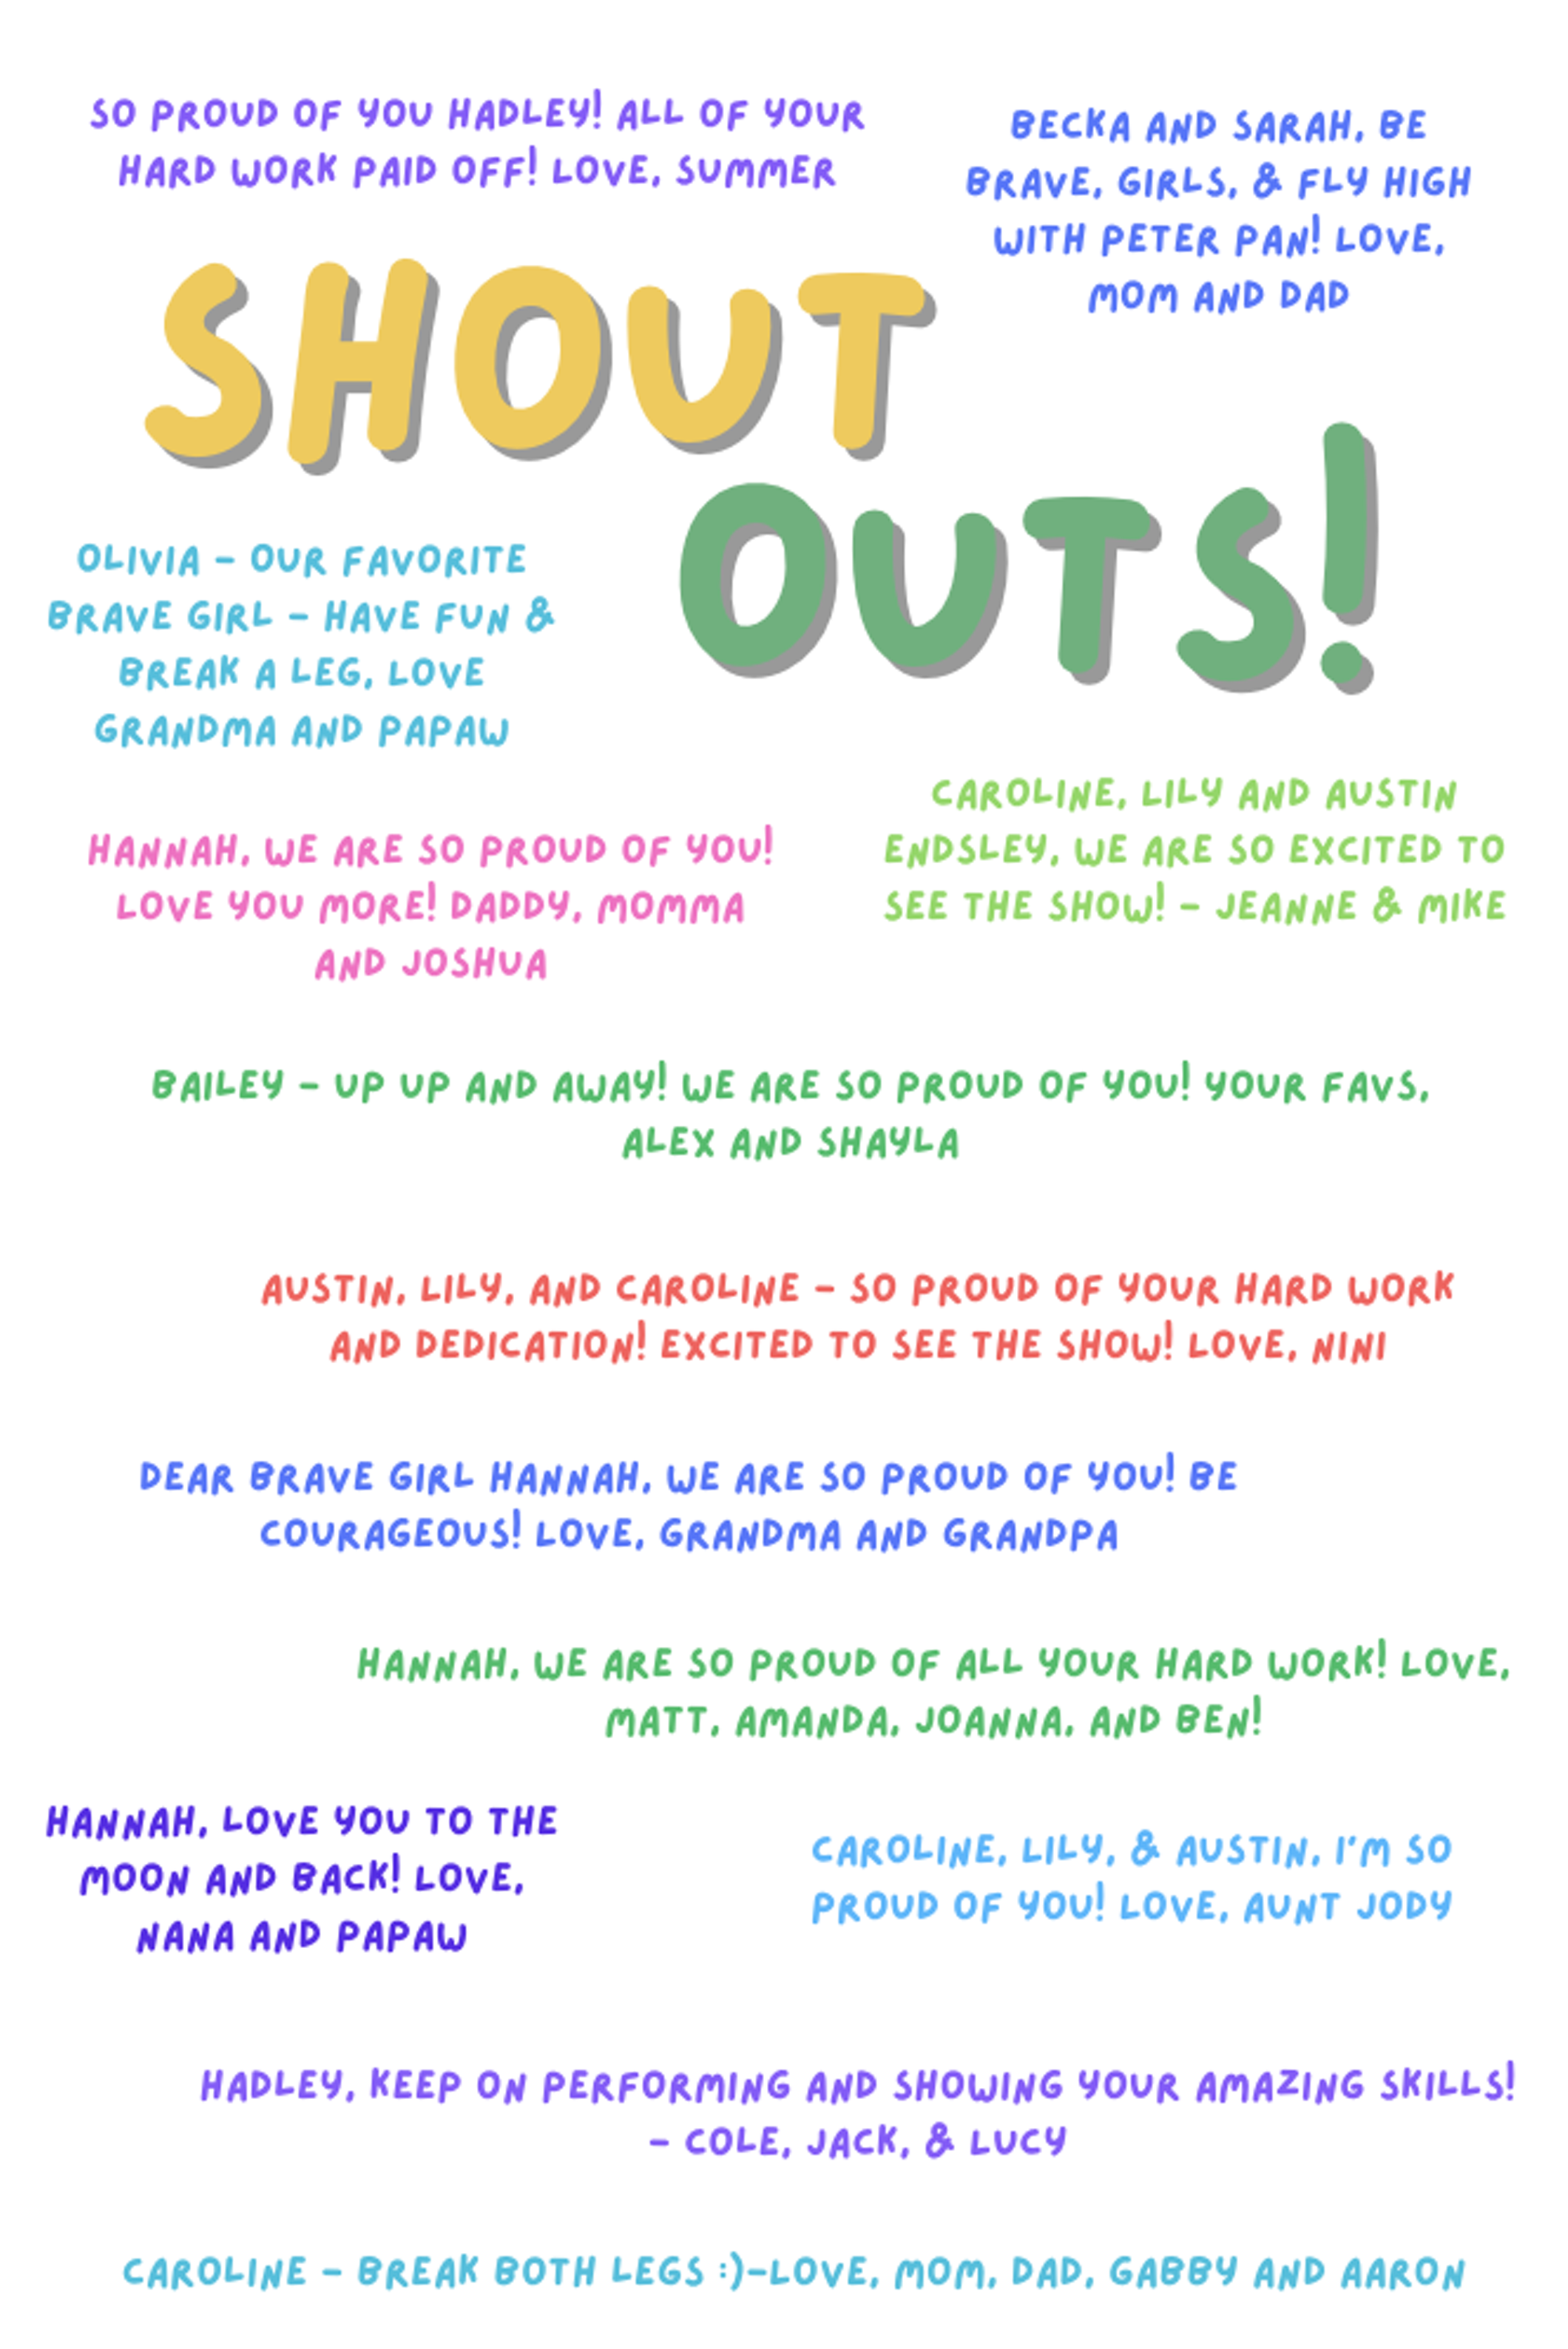 SO PROUD OF YOU HADLEY! ALL OF YOUR
HARD WORK PAID OFF! LOVE, SUMMER
BECKA AND SARAH, BE
BRAVE, GIRLS, & FLY HIGH
WITH PETER PAN! LOVE,
MOM AND DAD
SHOUT
OUTS!
OLIVIA - OUR FAVORITE
BRAVE GIRL - HAVE FUN &
BREAK A LEG, LOVE
GRANDMA AND PAPAW
CAROLINE, LILY AND AUSTIN
ENDSLEY, WE ARE SO EXCITED TO
SEE THE SHOW! - JEANNE & MIKE
HANNAH, WE ARE SO PROUD OF YOU!
LOVE YOU MORE! DADDY, MOMMA
AND JOSHUA
BAILEY - UP UP AND AWAY! WE ARE SO PROUD OF YOU! YOUR FAVS,
ALEX AND SHAYLA
AUSTIN, LILY, AND CAROLINE - SO PROUD OF YOUR HARD WORK
AND DEDICATION! EXCITED TO SEE THE SHOW! LOVE, NINI
DEAR BRAVE GIRL HANNAH, WE ARE SO PROUD OF YOU! BE
COURAGEOUS! LOVE, GRANDMA AND GRANDPA
HANNAH, WE ARE SO PROUD OF ALL YOUR HARD WORK! LOVE,
MATT, AMANDA, JOANNA, AND BEN!
HANNAH, LOVE YOU TO THE
MOON AND BACK! LOVE,
NANA AND PAPAW
CAROLINE, LILY, & AUSTIN, I'M SO
PROUD OF YOU! LOVE, AUNT JODY
HADLEY, KEEP ON PERFORMING AND SHOWING YOUR AMAZING SKILLS!
- COLE, JACK, & LUCY
CAROLINE - BREAK BOTH LEGS :)-LOVE, MOM, DAD, GABBY AND AARON